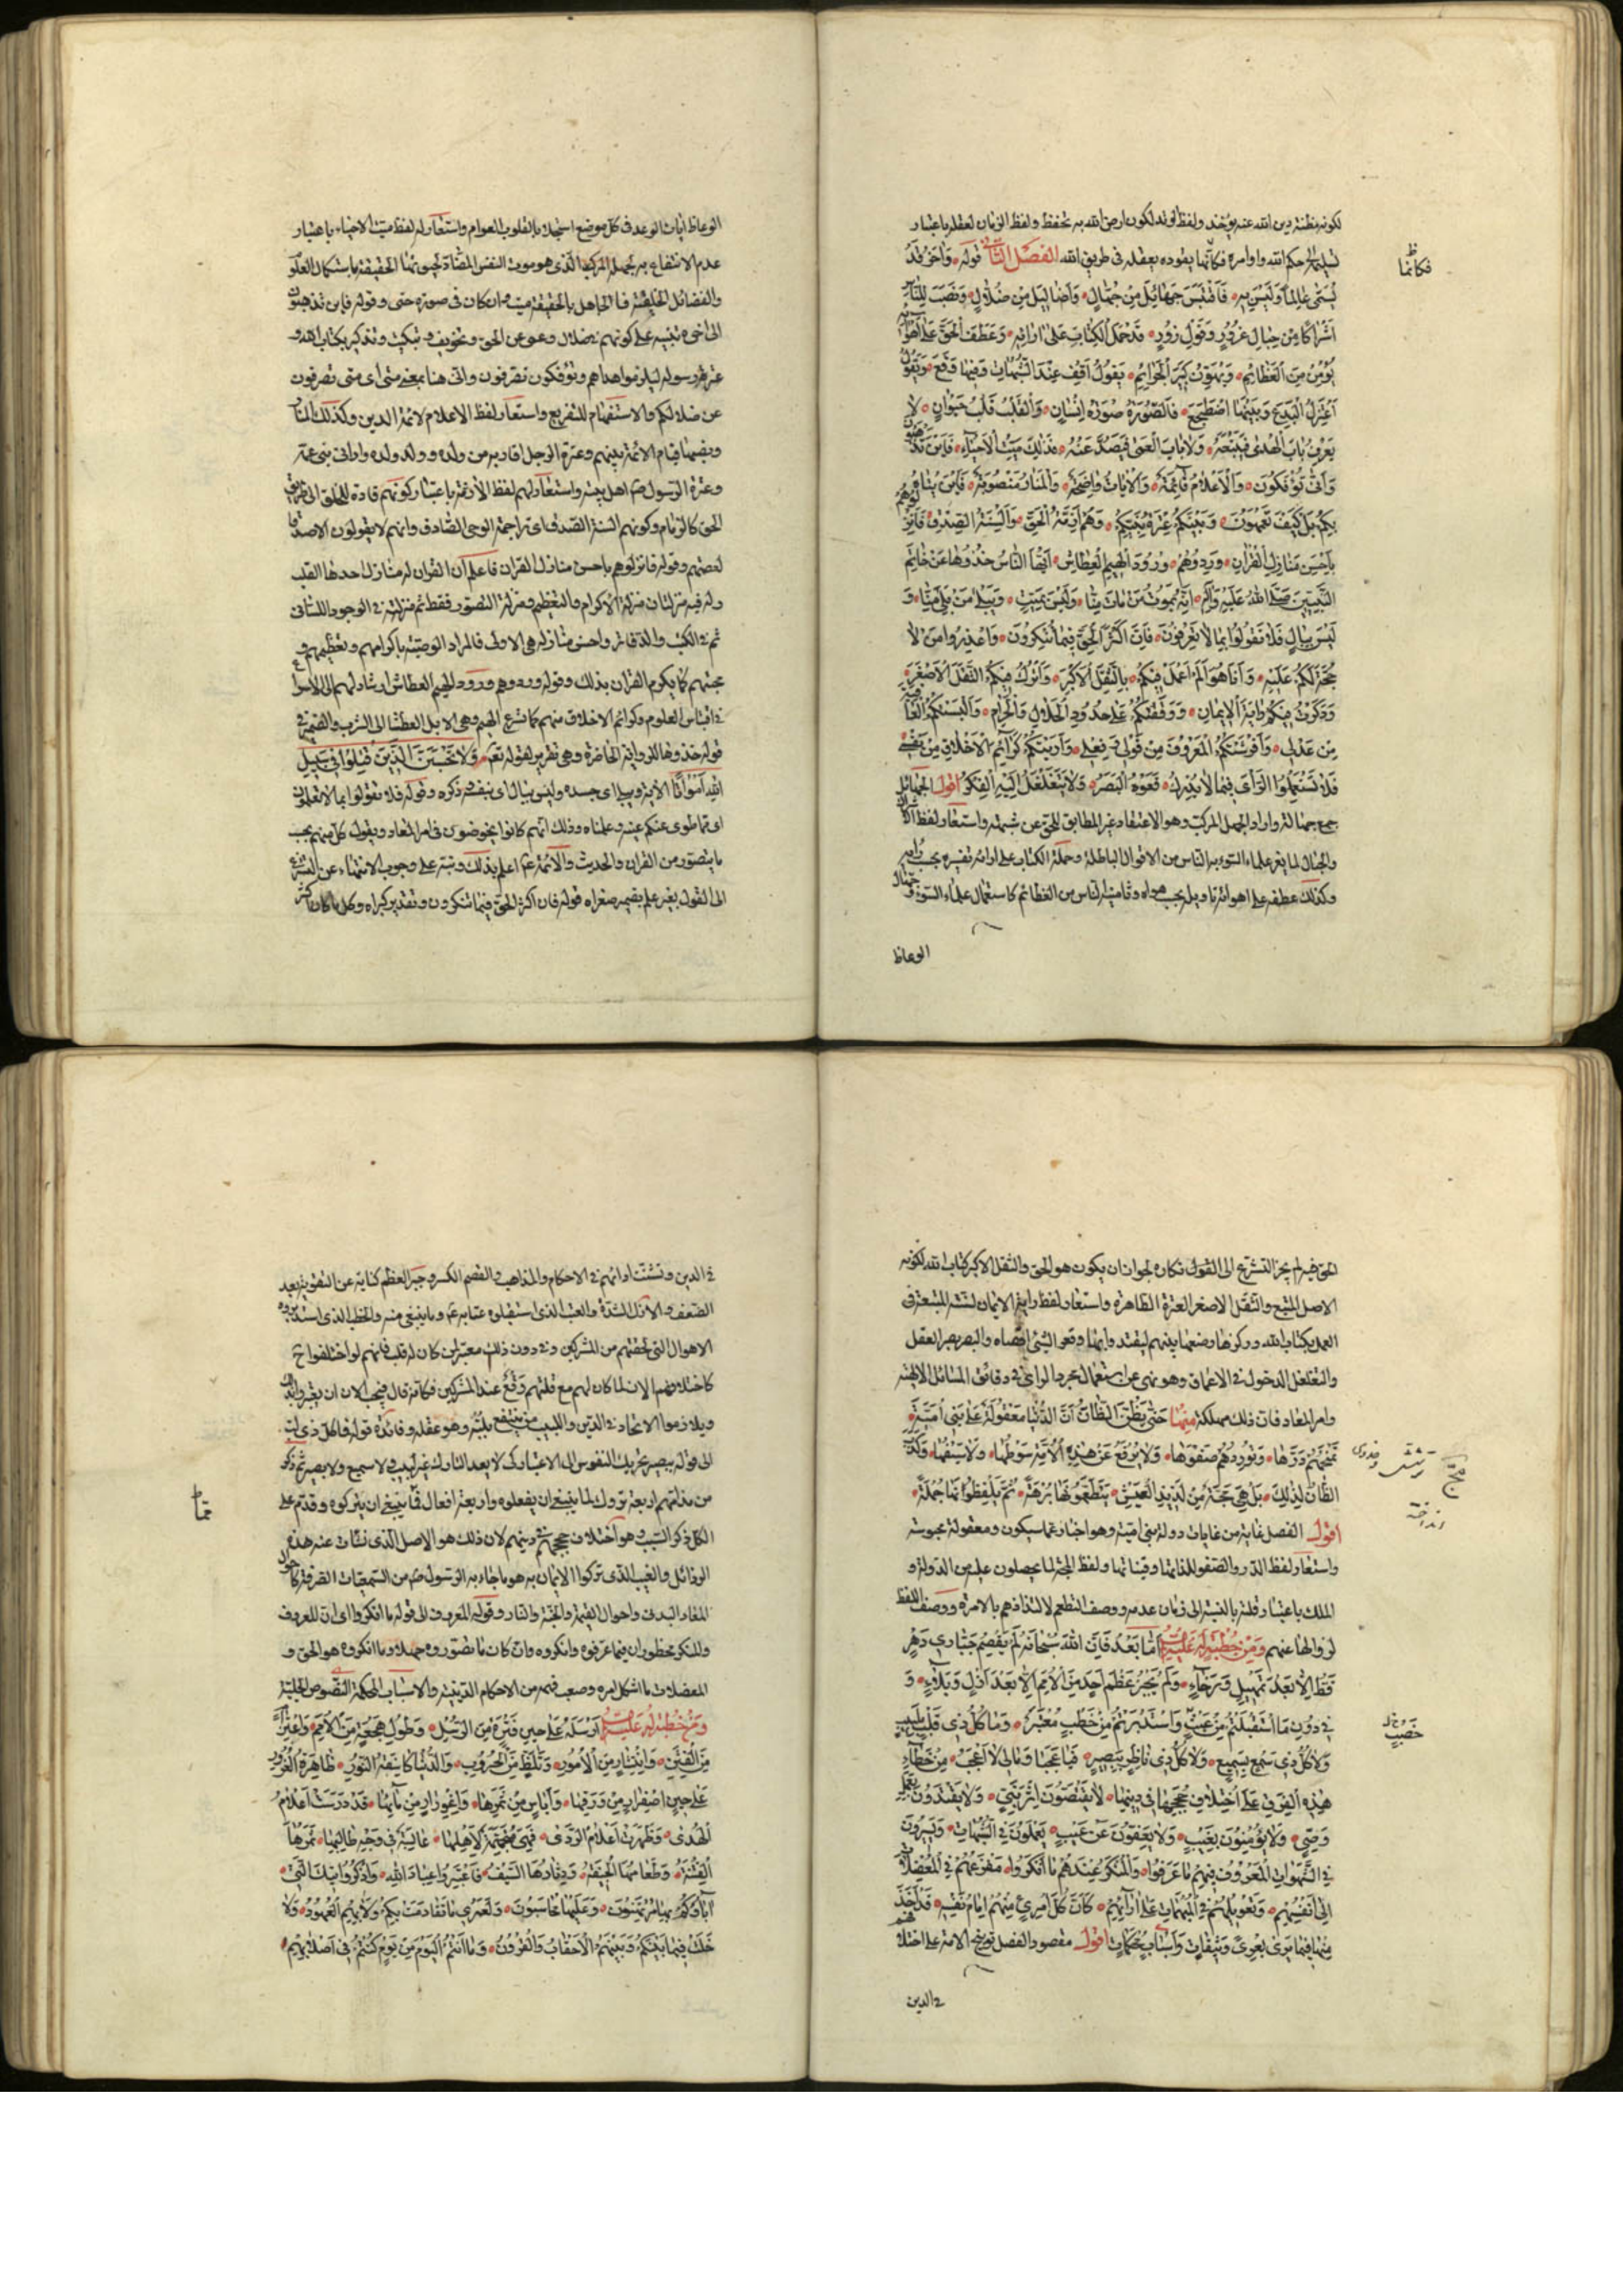 لكونه مظنة دين الله عنه يؤخذ ولفظ الوتد لكون ارض الله به تحفظ ولفظ الزمان لعقله باعتبار
تسليمه لحكم الله واوامره فكانّها يقوده بعقله فى طريق الله الفصل الثانى قوله وَاٰخَرُ قَدْ
فكانّما
يُسَمّٰى عَالِمًا وَلَيْسَ بِهِ فَاقْتَبَسَ جَهَائِلَ مِنْ جُهّالٍ وَاَضَالِيْلَ مِنْ ضُلّالٍ وَنَصَبَ لِلنّاسِ
اَشْرَاكًا مِنْ حِبَالِ غُرُوْرٍ وَقَوْلِ زُوْرٍ قَدْ حَمَلَ الْكِتَابَ عَلٰى اٰرَائِهِ وَعَطَفَ الْحَقَّ عَلٰى اَهْوَائِهِ
يُؤْمِنُ مِنَ الْعَظَائِمِ وَيُهَوِّنُ كَبِيْرَ الْجَرَائِمِ يَقُوْلُ اَقِفُ عِنْدَ الشُّبُهَاتِ وَفِيْهَا وَقَعَ وَيَقُوْلُ
اَعْتَزِلُ الْبِدَعَ وَبَيْنَهَا اضْطَجَعَ فَالصُّوْرَةُ صُوْرَةُ اِنْسَانٍ وَالْقَلْبُ قَلْبُ حَيَوَانٍ لَا
يَعْرِفُ بَابَ الْهُدٰى فَيَتَّبِعَهُ وَلَا بَابَ الْعَمٰى فَيَصُدَّ عَنْهُ فَذٰلِكَ مَيِّتُ الْاَحْيَاءِ فَاَيْنَ تَذْهَبُوْنَ
وَاَنّٰى تُؤْفَكُوْنَ وَالْاَعْلَامُ قَائِمَةٌ وَالْاٰيَاتُ وَاضِحَةٌ وَالْمَنَارُ مَنْصُوْبَةٌ فَاَيْنَ يُتَاهُ
بِكُمْ بَلْ كَيْفَ تَعْمَهُوْنَ وَبَيْنَكُمْ عِتْرَةُ نَبِيِّكُمْ وَهُمْ اَزِمَّةُ الْحَقِّ وَاَلْسِنَةُ الصِّدْقِ فَاَنْزِلُوْهُمْ
بِاَحْسَنِ مَنَازِلِ الْقُرْاٰنِ وَرِدُوْهُمْ وُرُوْدَ الْهِيْمِ الْعِطَاشِ اَيُّهَا النَّاسُ خُذُوْهَا عَنْ خَاتَمِ
النَّبِيِّيْنَ صَلَّى اللّٰهُ عَلَيْهِ وَاٰلِهِ اِنَّهُ يَمُوْتُ مَنْ مَاتَ مِنَّا وَلَيْسَ بِمَيِّتٍ وَيَبْلٰى مَنْ بَلِيَ مِنَّا وَ
لَيْسَ بِبَالٍ فَلَا تَقُوْلُوْا بِمَا لَا تَعْرِفُوْنَ فَاِنَّ اَكْثَرَ الْحَقِّ فِيْمَا تُنْكِرُوْنَ وَاعْذِرُوْا مَنْ لَا
حُجَّةَ لَكُمْ عَلَيْهِ وَاَنَا هُوَ اَلَمْ اَعْمَلْ فِيْكُمْ بِالثَّقَلِ الْاَكْبَرِ وَاَتْرُكْ فِيْكُمُ الثَّقَلَ الْاَصْغَرَ
وَرَكَزْتُ فِيْكُمْ رَايَةَ الْاِيْمَانِ وَوَقَفْتُكُمْ عَلٰى حُدُوْدِ الْحَلَالِ وَالْحَرَامِ وَاَلْبَسْتُكُمُ الْعَافِيَةَ
مِنْ عَدْلِى وَاَفْرَشْتُكُمُ الْمَعْرُوْفَ مِنْ قَوْلِى وَفِعْلِى وَاَرَيْتُكُمْ كَرَائِمَ الْاَخْلَاقِ مِنْ نَفْسِى
فَلَا تَسْتَعْمِلُوا الرَّأْىَ فِيْمَا لَا يُدْرِكُ قَعْرَهُ الْبَصَرُ وَلَا يَتَغَلْغَلُ اِلَيْهِ الْفِكَرُ اقول الجهائل
جمع جهالة واراد الجهل المركب وهو الاعتقاد غير المطابق للحق عن شبهة واستعار لفظ الاشراك
والحبال لما يغر علماء السوء به الناس من الاقوال الباطلة وحمله الكتاب على ارائه تفسيره بحسب رأيه
وكذلك عطفه على اهوائه تاويله بحسب هواه وتامينه الناس من العظائم كاستعمال علماء السوء وجهال
الوعاظ
الوعاظ ايات الوعد فى كل موضع استجلابا لقلوب العوام واستعار له لفظ ميت الاحياء باعتبار
عدم الانتفاع به لجهله المركب الذى هو موت النفس المضادة لحيوتها الحقيقة باستكمال العلو
والفضائل الخلقية فالجاهل بالحقيقة ميت وان كان فى صورة حى وقوله فاين تذهبون
الى اخره تنبيه على كونهم فى ضلال وعمى عن الحق وتخويف وتبكيت وتذكير بكتاب الله و
عترة رسوله ليلزموا هداهم وتؤفكون تصرفون وانى هنا بمعنى متى اى متى تصرفون
عن ضلالكم والاستفهام للتقريع واستعار لفظ الاعلام لائمة الدين وكذلك المنار
ونصبها قيام الائمة بينهم وعترة الرجل اقاربه من ولده وولد ولده وادانى بنى عمه
وعترة الرسول ص اهل بيته واستعار لهم لفظ الازمة باعتبار كونهم قادة للخلق الى طريق
الحق كالزمام وكونهم السنة الصدق اى تراجمة الوحى الصادق وانهم لا يقولون الا صدقا
لعصمتهم وقوله فانزلوهم باحسن منازل القران فاعلم ان القران له منازل احدها القلب
وله فيه منزلتان منزلة الاكرام والتعظيم ومنزلة التصور فقط ثم منزلته فى الوجود اللسانى
ثم فى الكتب والدفاتر واحسن منازله هى الاولى فالمراد الوصية باكرامهم وتعظيمهم و
محبتهم كما يكرم القران بذلك وقوله وردوهم ورود الهيم العطاش ارشاد لهم الى الاسراع
فى اقتباس العلوم وكرائم الاخلاق منهم كما تسرع الهيم وهى الابل العطشا الى الشرب والضمير فى
قوله خذوها للرواية الحاضرة وهى تقرير لقوله تعالى وَلَا تَحْسَبَنَّ الَّذِيْنَ قُتِلُوْا فِى سَبِيْلِ
اللّٰهِ اَمْوَاتًا الاية ويبلى اى جسده وليس ببال اى بنفسه وذكره وقوله فلا تقولوا بما لا تعلمون
اى مما طوى عنكم عينه وعلمناه وذلك انهم كانوا يخوضون فى امر المعاد ويقول كل منهم بحسب
ما يتصور من القران والحديث والائمة ع اعلم بذلك ونبه على وجوب الانتهاء عن التسرع
الى القول بغير علم بضمير صغراه قوله فان اكثر الحق فيما تنكرون وتقدير كبراه وكل ما كان اكثر
الحق فيه لم يجز التسرّع الى القول بنكاره لجواز ان يكون هو الحق والثقل الاكبر كتاب الله لكونه
الاصل المتبع والثقل الاصغر العترة الطاهرة واستعار لفظ راية الايمان لسنته المتبعة فى
العمل بكتاب الله وركزها وضعها بينهم ليقتدوا بها وقعر الشئ اقصاه والبصر بصر العقل
والتغلغل الدخول فى الاعماق وهو نهى عن استعمال مجرد الراى فى دقائق المسائل الالهية
وامر المعاد فان ذلك مهلكة منها حَتّٰى يَظُنَّ الظَّانُّ اَنَّ الدُّنْيَا مَعْقُوْلَةٌ عَلٰى بَنِى اُمَيَّةَ
تَمْنَحُهُمْ دَرَّهَا وَتُوْرِدُهُمْ صَفْوَهَا وَلَا يُرْفَعُ عَنْ هٰذِهِ الْاُمَّةِ سَوْطُهَا وَلَا سَيْفُهَا وَكَذَبَ
الظَّانُّ لِذٰلِكَ بَلْ هِىَ مَجَّةٌ مِنْ لَذِيْذِ الْعَيْشِ يَتَطَعَّمُوْنَهَا بُرْهَةً ثُمَّ يَلْفِظُوْنَهَا جُمْلَةً
مجّ
انداخته
اقول الفصل غاية من غايات دولة بنى امية وهو اخبار عما سيكون ومعقولة محبوسة
واستعار لفظ الدر والصفو للذاتها وقيناتها ولفظ المجة لما يحصلون عليه من الدولة و
الملك باعتبار قلته بالنسبة الى زمان عدمه ووصف التطعم لالتذاذهم بالامرة ووصف اللفظ
لزوالها عنهم وَمِنْ خُطْبَةٍ لَهُ عَلَيْهِ السَّلَام اَمَّا بَعْدُ فَاِنَّ اللّٰهَ سُبْحَانَهُ لَمْ يَقْصِمْ جَبَّارِى دَهْرٍ
قَطُّ اِلَّا بَعْدَ تَمْهِيْلٍ وَرَخَاءٍ وَلَمْ يَجْبُرْ عَظْمَ اَحَدٍ مِنَ الْاُمَمِ اِلَّا بَعْدَ اَزْلٍ وَبَلَاءٍ وَ
فِى دُوْنِ مَا اسْتَقْبَلْتُمْ مِنْ عَتْبٍ وَاسْتَدْبَرْتُمْ مِنْ خَطْبٍ مُعْتَبَرٌ وَمَا كُلُّ ذِى قَلْبٍ بِلَبِيْبٍ
وَلَا كُلُّ ذِى سَمْعٍ بِسَمِيْعٍ وَلَا كُلُّ ذِى نَاظِرٍ بِبَصِيْرٍ فَيَا عَجَبًا وَمَا لِى لَا اَعْجَبُ مِنْ خَطَاءِ
هٰذِهِ الْفِرَقِ عَلَى اخْتِلَافِ حُجَجِهَا فِى دِيْنِهَا لَا يَقْتَصُّوْنَ اَثَرَ نَبِىٍّ وَلَا يَقْتَدُوْنَ بِعَمَلِ
وَصِىٍّ وَلَا يُؤْمِنُوْنَ بِغَيْبٍ وَلَا يَعِفُّوْنَ عَنْ عَيْبٍ يَعْمَلُوْنَ فِى الشُّبُهَاتِ وَيَسِيْرُوْنَ
فِى الشَّهَوَاتِ الْمَعْرُوْفُ فِيْهِمْ مَا عَرَفُوْا وَالْمُنْكَرُ عِنْدَهُمْ مَا اَنْكَرُوْا مَفْزَعُهُمْ فِى الْمُعْضِلَاتِ
اِلٰى اَنْفُسِهِمْ وَتَعْوِيْلُهُمْ فِى الْمُبْهَمَاتِ عَلٰى اٰرَائِهِمْ كَاَنَّ كُلَّ امْرِئٍ مِنْهُمْ اِمَامُ نَفْسِهِ قَدْ اَخَذَ
مِنْهَا فِيْمَا يَرٰى بِعُرًى وَثِيْقَاتٍ وَاَسْبَابٍ مُحْكَمَاتٍ اقول مقصود الفصل توبيخ الامة على اختلافهم
فى الدين
فى الدين وتشتت ارائهم فى الاحكام والمذاهب والقصم الكسر وجبر العظم كناية عن التقوية بعد
الضعف والازل الشدة والعتب الذى استقبلوه عتابه ع وما ينبغى منه والخطب الذى استدبروه
الاهوال التى لحقتهم من المشركين وفى دون ذلك معتبر لمن كان له قلب فانهم لو اختلفوا ح
كاختلافهم الان لما كان لهم مع قلتهم وقع عند المشركين فكانه قال فيجب الان ان يعتبروا بذلك
ويلازموا الاتحاد فى الدين واللبيب من ينتفع بلبّه وهو عقله وفائدة قوله وما كل ذى لب
الى قوله ببصير تحريك النفوس الى الاعتبار كى لا يعد التارك غير لبيب ولا سميع ولا بصير ثم ذكر
من مذامهم اربعة تروك لما ينبغى ان يفعلوه واربعة افعال مما ينبغى ان يتركوه وقدم على
قمّا
الكل ذكر السبب وهو اختلاف حججهم فى دينهم لان ذلك هو الاصل الذى نشات عنه هذه
الرذائل والغيب الذى تركوا الايمان به هو ما جاء به الرسول ص من السمعيات الصرفة كاحوال
المعاد البدنى واحوال القيمة والجنة والنار وقوله المعروف الى قوله ما انكروا اى ان المعروف
والمنكر محظوران فيما عرفوه وانكروه وان كان ما تصوروه جهلا وما انكروه هو الحق و
المعضلات ما اشكل امره وصعب فهمه من الاحكام الدينية والاسباب المحكمة النصوص الجلية
وَمِنْ خُطْبَةٍ لَهُ عَلَيْهِ السَّلَام اَرْسَلَهُ عَلٰى حِيْنِ فَتْرَةٍ مِنَ الرُّسُلِ وَطُوْلِ هَجْعَةٍ مِنَ الْاُمَمِ وَاعْتِزَامٍ
مِنَ الْفِتَنِ وَانْتِشَارٍ مِنَ الْاُمُوْرِ وَتَلَظٍّ مِنَ الْحُرُوْبِ وَالدُّنْيَا كَاسِفَةُ النُّوْرِ ظَاهِرَةُ الْغُرُوْرِ
عَلٰى حِيْنِ اصْفِرَارٍ مِنْ وَرَقِهَا وَاِيَاسٍ مِنْ ثَمَرِهَا وَاغْوِرَارٍ مِنْ مَائِهَا قَدْ دَرَسَتْ اَعْلَامُ
الْهُدٰى وَظَهَرَتْ اَعْلَامُ الرَّدٰى فَهِىَ مُتَجَهِّمَةٌ لِاَهْلِهَا عَابِسَةٌ فِى وَجْهِ طَالِبِهَا ثَمَرُهَا
الْفِتْنَةُ وَطَعَامُهَا الْجِيْفَةُ وَدِثَارُهَا السَّيْفُ فَاعْتَبِرُوْا عِبَادَ اللّٰهِ وَاذْكُرُوْا تِيْكَ الَّتِى
اٰبَاؤُكُمْ بِهَا مُرْتَهَنُوْنَ وَعَلَيْهَا مُحَاسَبُوْنَ وَلَعَمْرِى مَا تَقَادَمَتْ بِكُمْ وَلَا بِهِمُ الْعُهُوْدُ وَلَا
خَلَتْ فِيْمَا بَيْنَكُمْ وَبَيْنَهُمُ الْاَحْقَابُ وَالْقُرُوْنُ وَمَا اَنْتُمُ الْيَوْمَ مِنْ يَوْمٍ كُنْتُمْ فِى اَصْلَابِهِمْ